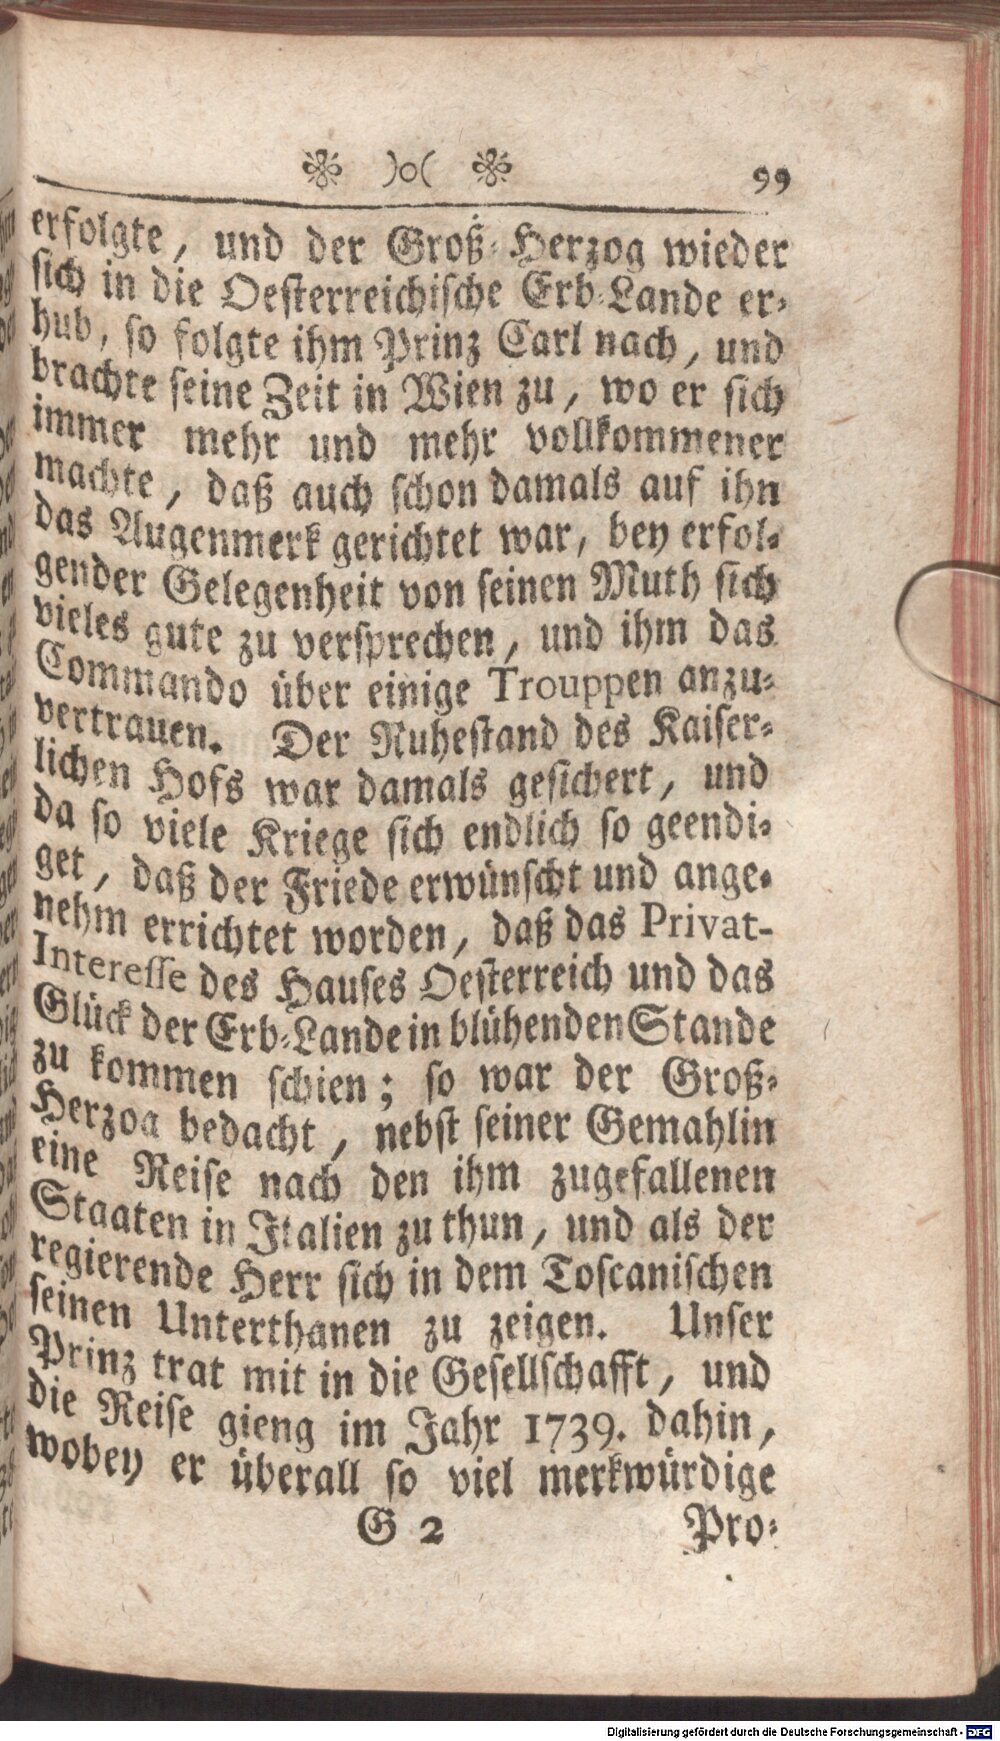 ❀ )o( ❀ 99
erfolgte, und der Groß-Herzog wieder
sich in die Oesterreichische Erb-Lande er-
hub, so folgte ihm Prinz Carl nach, und
brachte seine Zeit in Wien zu, wo er sich
immer mehr und mehr vollkommener
machte, daß auch schon damals auf ihn
das Augenmerk gerichtet war, bey erfol-
gender Gelegenheit von seinen Muth sich
vieles gute zu versprechen, und ihm das
Commando über einige Trouppen anzu-
vertrauen. Der Ruhestand des Kaiser-
lichen Hofs war damals gesichert, und
da so viele Kriege sich endlich so geendi-
get, daß der Friede erwünscht und ange-
nehm errichtet worden, daß das Privat-
Interesse des Hauses Oesterreich und das
Glück der Erb-Lande in blühenden Stande
zu kommen schien; so war der Groß-
Herzog bedacht, nebst seiner Gemahlin
eine Reise nach den ihm zugefallenen
Staaten in Italien zu thun, und als der
regierende Herr sich in dem Toscanischen
seinen Unterthanen zu zeigen. Unser
Prinz trat mit in die Gesellschafft, und
die Reise gieng im Jahr 1739. dahin,
wobey er überall so viel merkwürdige
G 2 Pro-
Digitalisierung gefördert durch die Deutsche Forschungsgemeinschaft - DFG